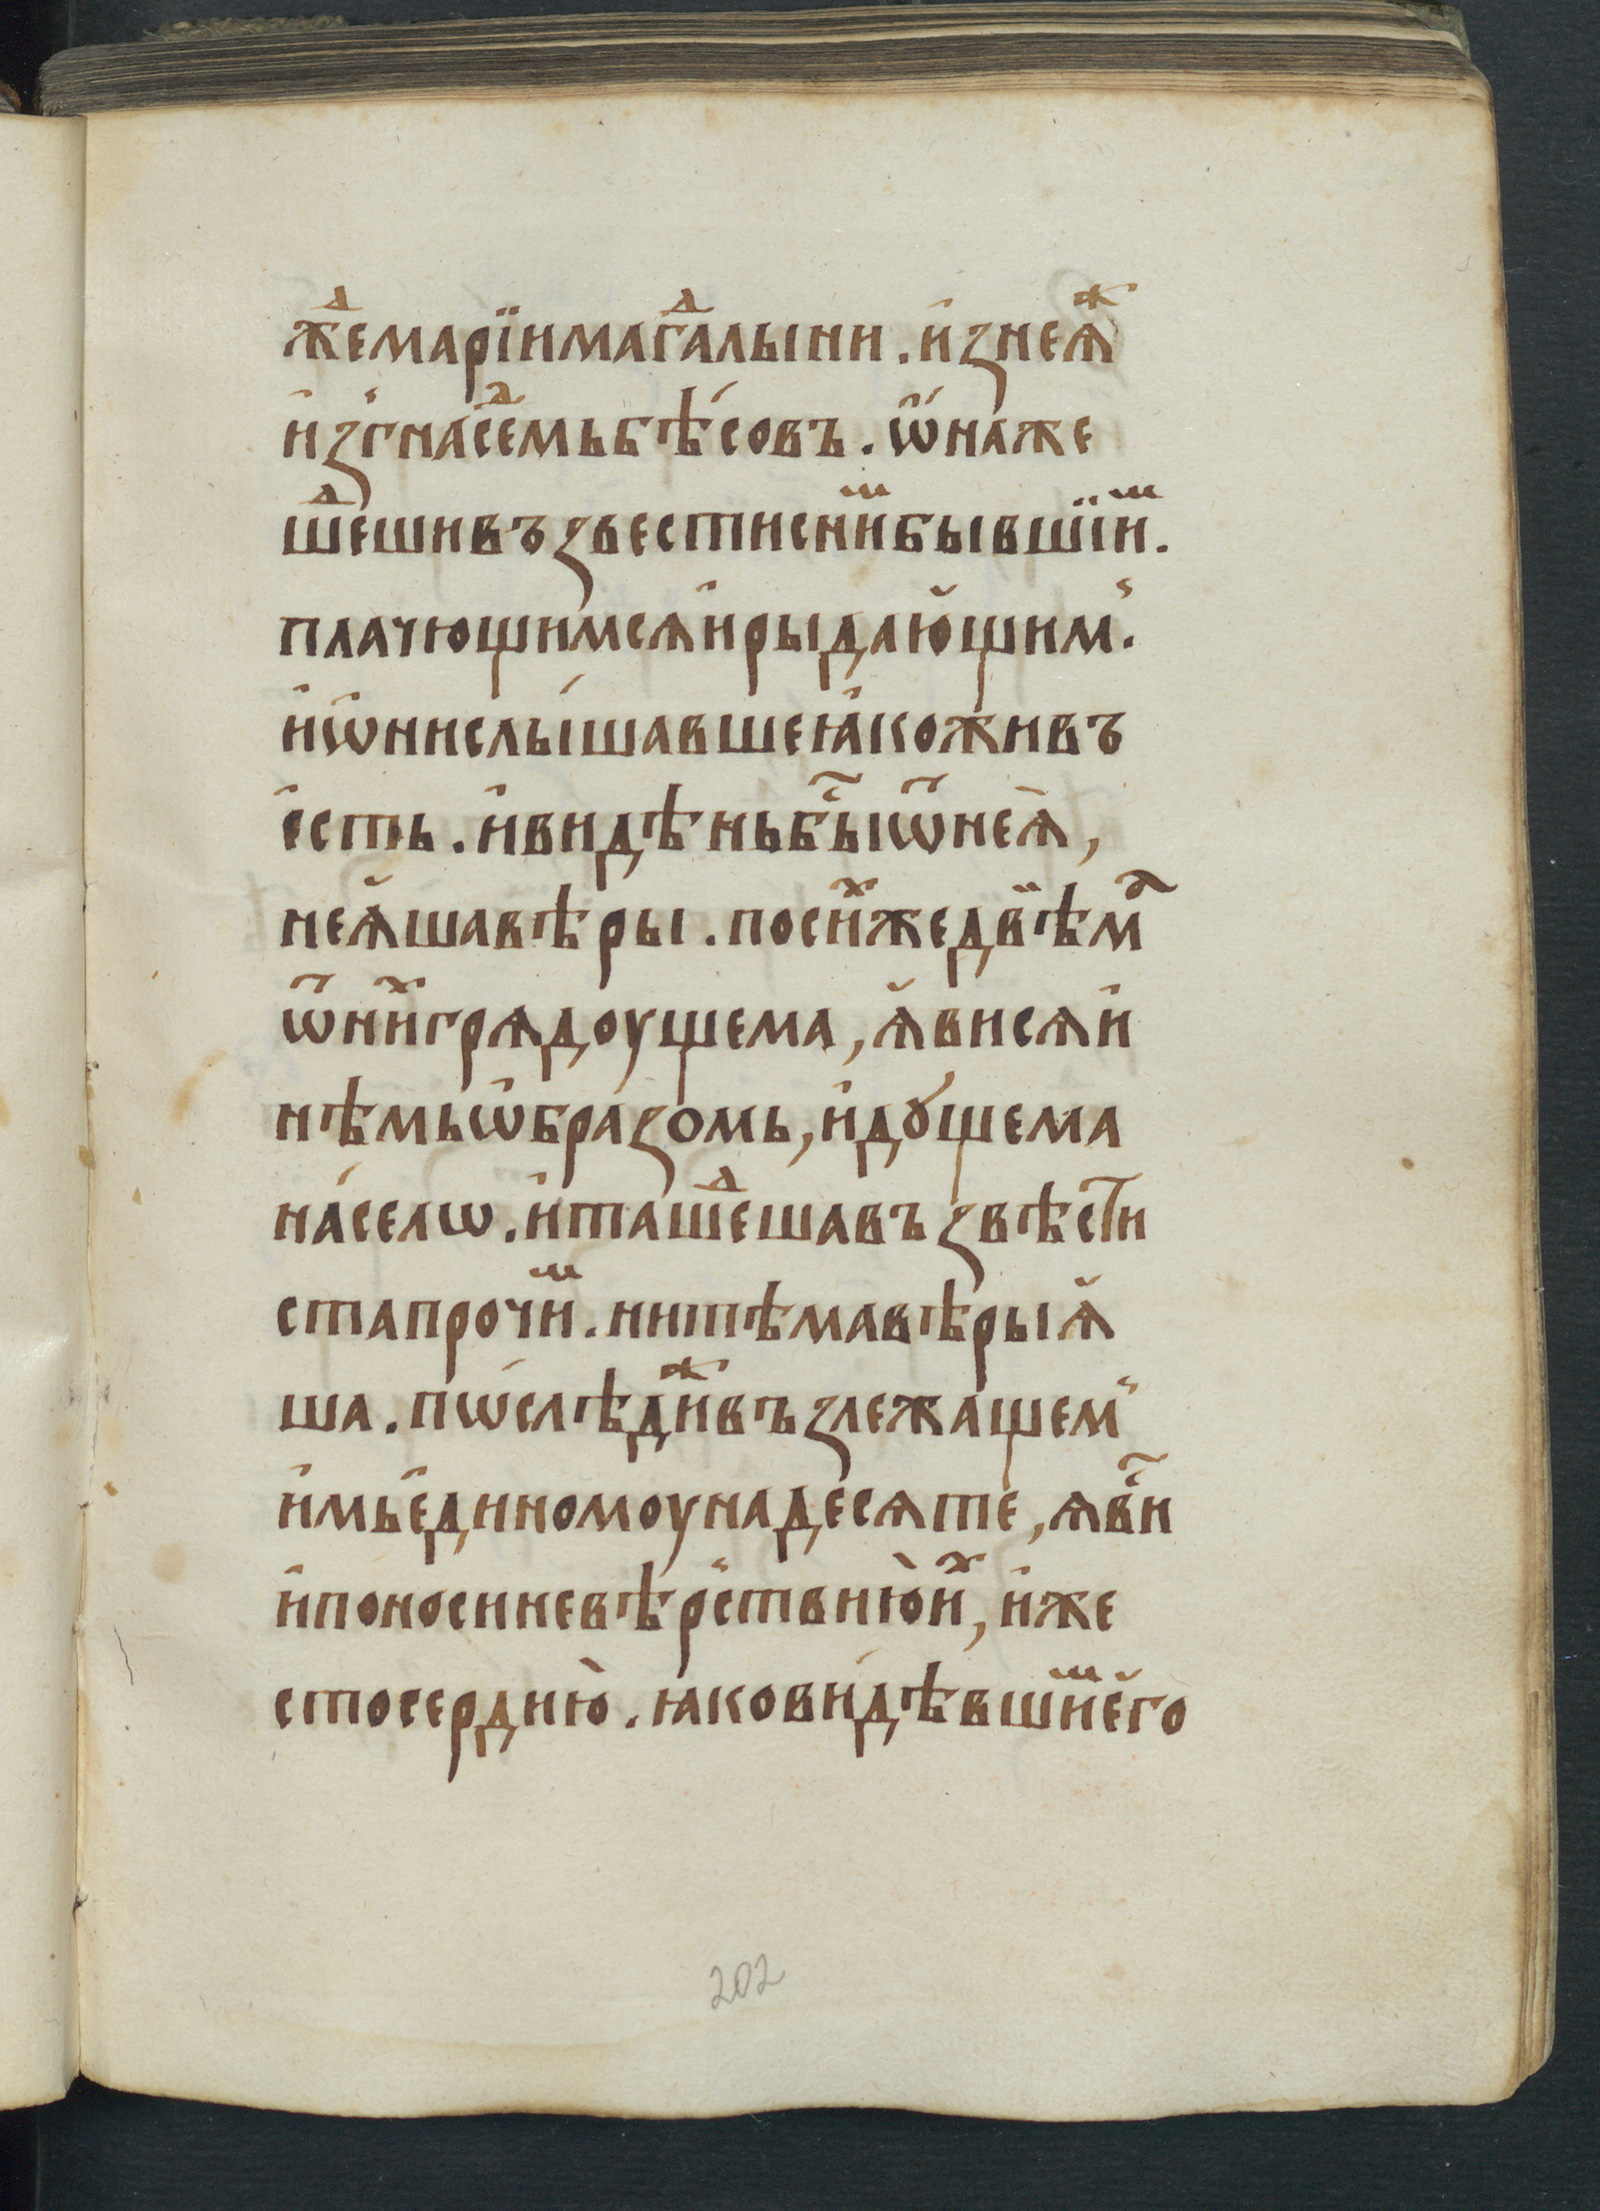 жⷣемарїимагⷣалыни. и҆знеѧ҆ⷤ
и҆згна́сеⷣмьбѣ́совъ. ѡ҆́наже
шеⷣшивъзвестиснⷨи҆бывшїиⷨ.
плачющимсѧи҆рыдаю҆щим̾.
и҆ѡ҆нислы́шавшеꙗ҆коживъ
є҆сть. и҆видѣньбыⷭ҇ѿнеѧ̀,
неѧ҆шавѣры. посиⷯ҆жедвѣмаⷶ
ѿниⷯгрѧдоущема, ꙗ҆висѧи҆
нѣмьѡ҆бра́зомь, и҆дꙋ́щема
на́селѡ. и҆ташеⷣшавъзвѣсти
стапрочиⷨ. нитѣмавѣрыꙗ҆
ша. пѡ́слѣдиⷤвъзлежащем̾
и҆мье҆диномоунадесѧте, ꙗвиⷭ҇
и҆поносиневѣр̾ствнїю̀иⷯ, и҆же
стосердию̀. ꙗковидѣвшиⷨе҆го
202